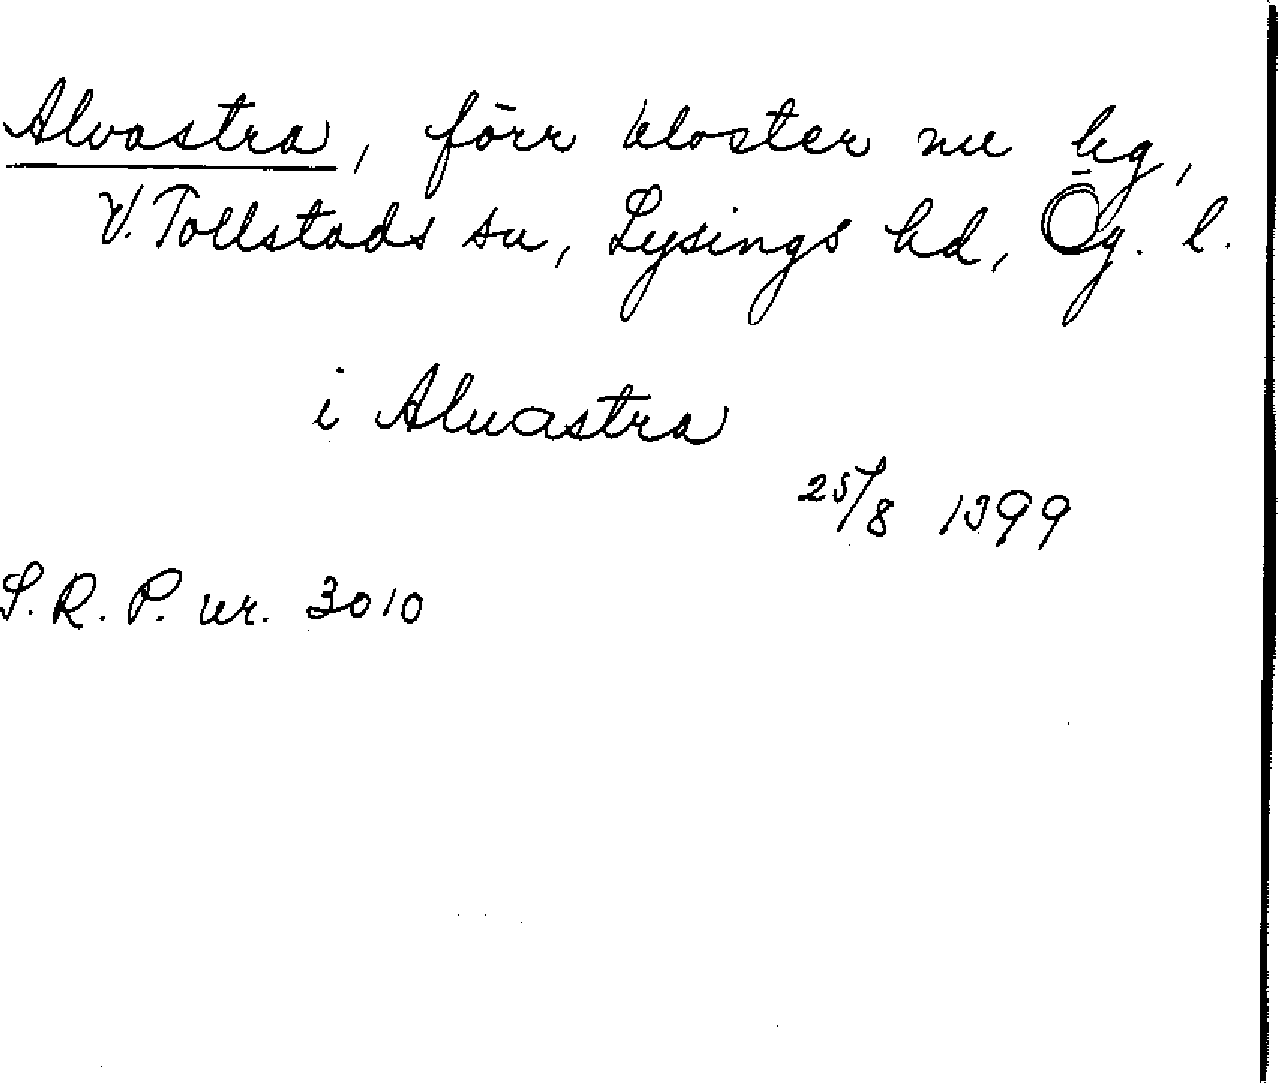 Alvastra, förr kloster nu hg,
V. Tollstads sn, Lysings hd, Ög. l.
i Aluastra
25/8 1399
S. R. P. nr. 3010